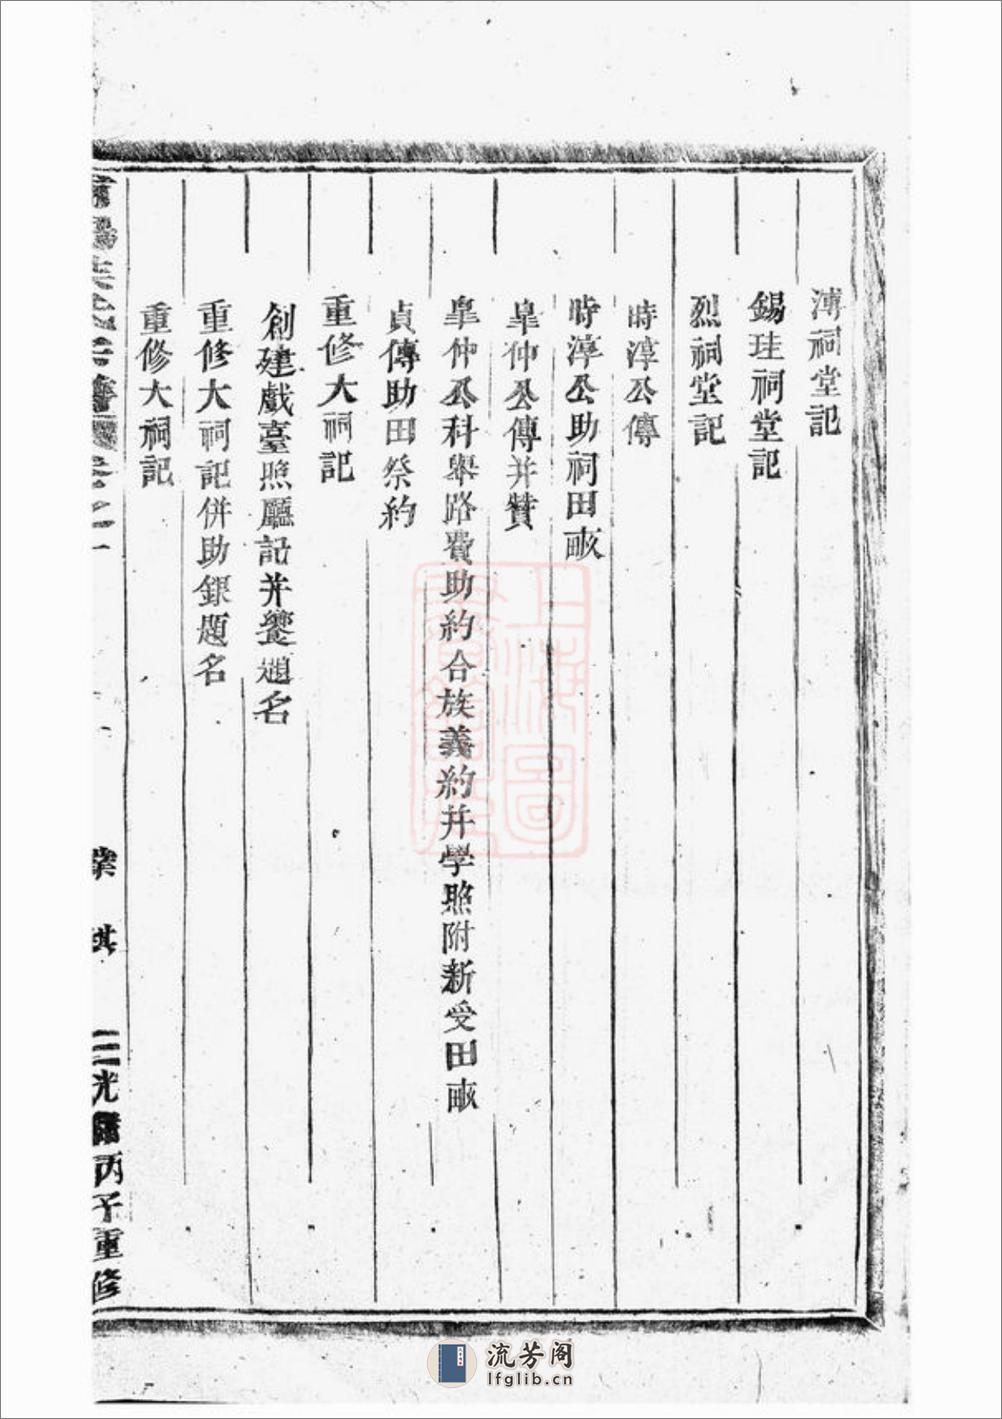 溥祠堂記
錫珪祠堂記
烈祠堂記
時淳公傳
時淳公助祠田畝
臯仲公傳并贊
臯仲公科舉路費助約合族義約并學照附新受田畝
貞傳助田祭約
重修大祠記
創建戲臺照廳記并饗題名
重修大祠記併助銀題名
重修大祠記
光緒丙子重修
上海圖
流芳阁
lfglib.cn